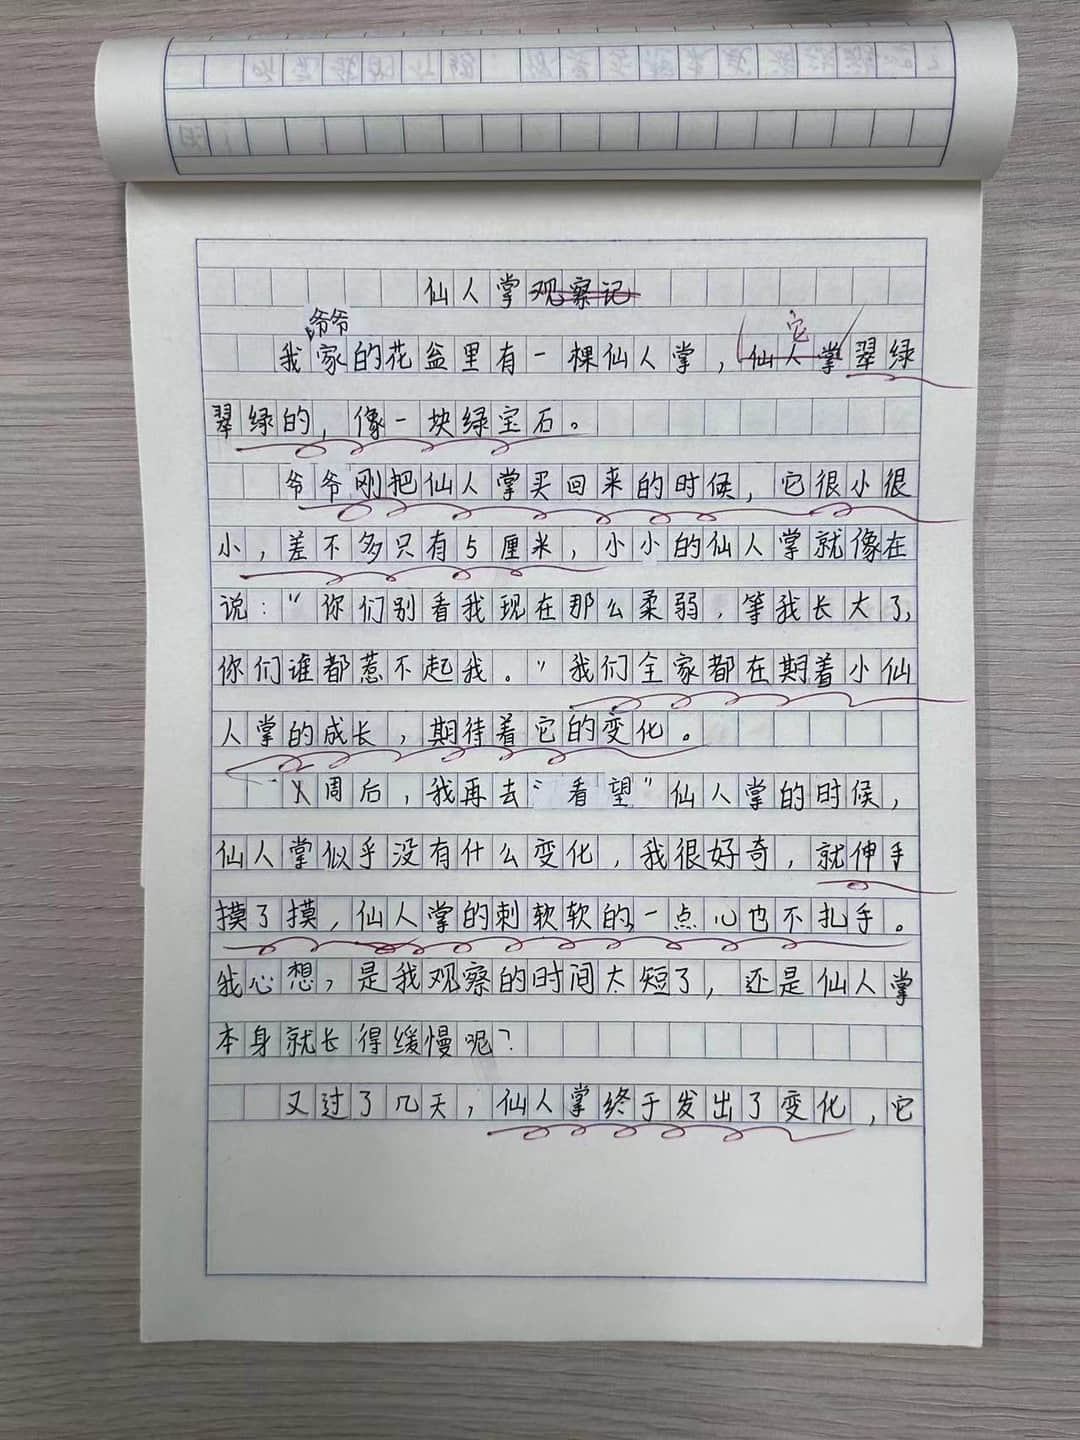 仙人掌观察记
爷爷
它
我家的花盆里有一棵仙人掌，仙人掌翠绿
翠绿的，像一块绿宝石。
爷爷刚把仙人掌买回来的时候，它很小很
小，差不多只有5厘米，小小的仙人掌就像在
说："你们别看我现在那么柔弱，等我长大了，
你们谁都惹不起我。"我们全家都在期着小仙
人掌的成长，期待着它的变化。
周后，我再去"看望"仙人掌的时候，
仙人掌似乎没有什么变化，我很好奇，就伸手
摸了摸，仙人掌的刺软软的，一点心也不扎手。
我心想，是我观察的时间太短了，还是仙人掌
本身就长得缓慢呢？
又过了几天，仙人掌终于发出了变化，它